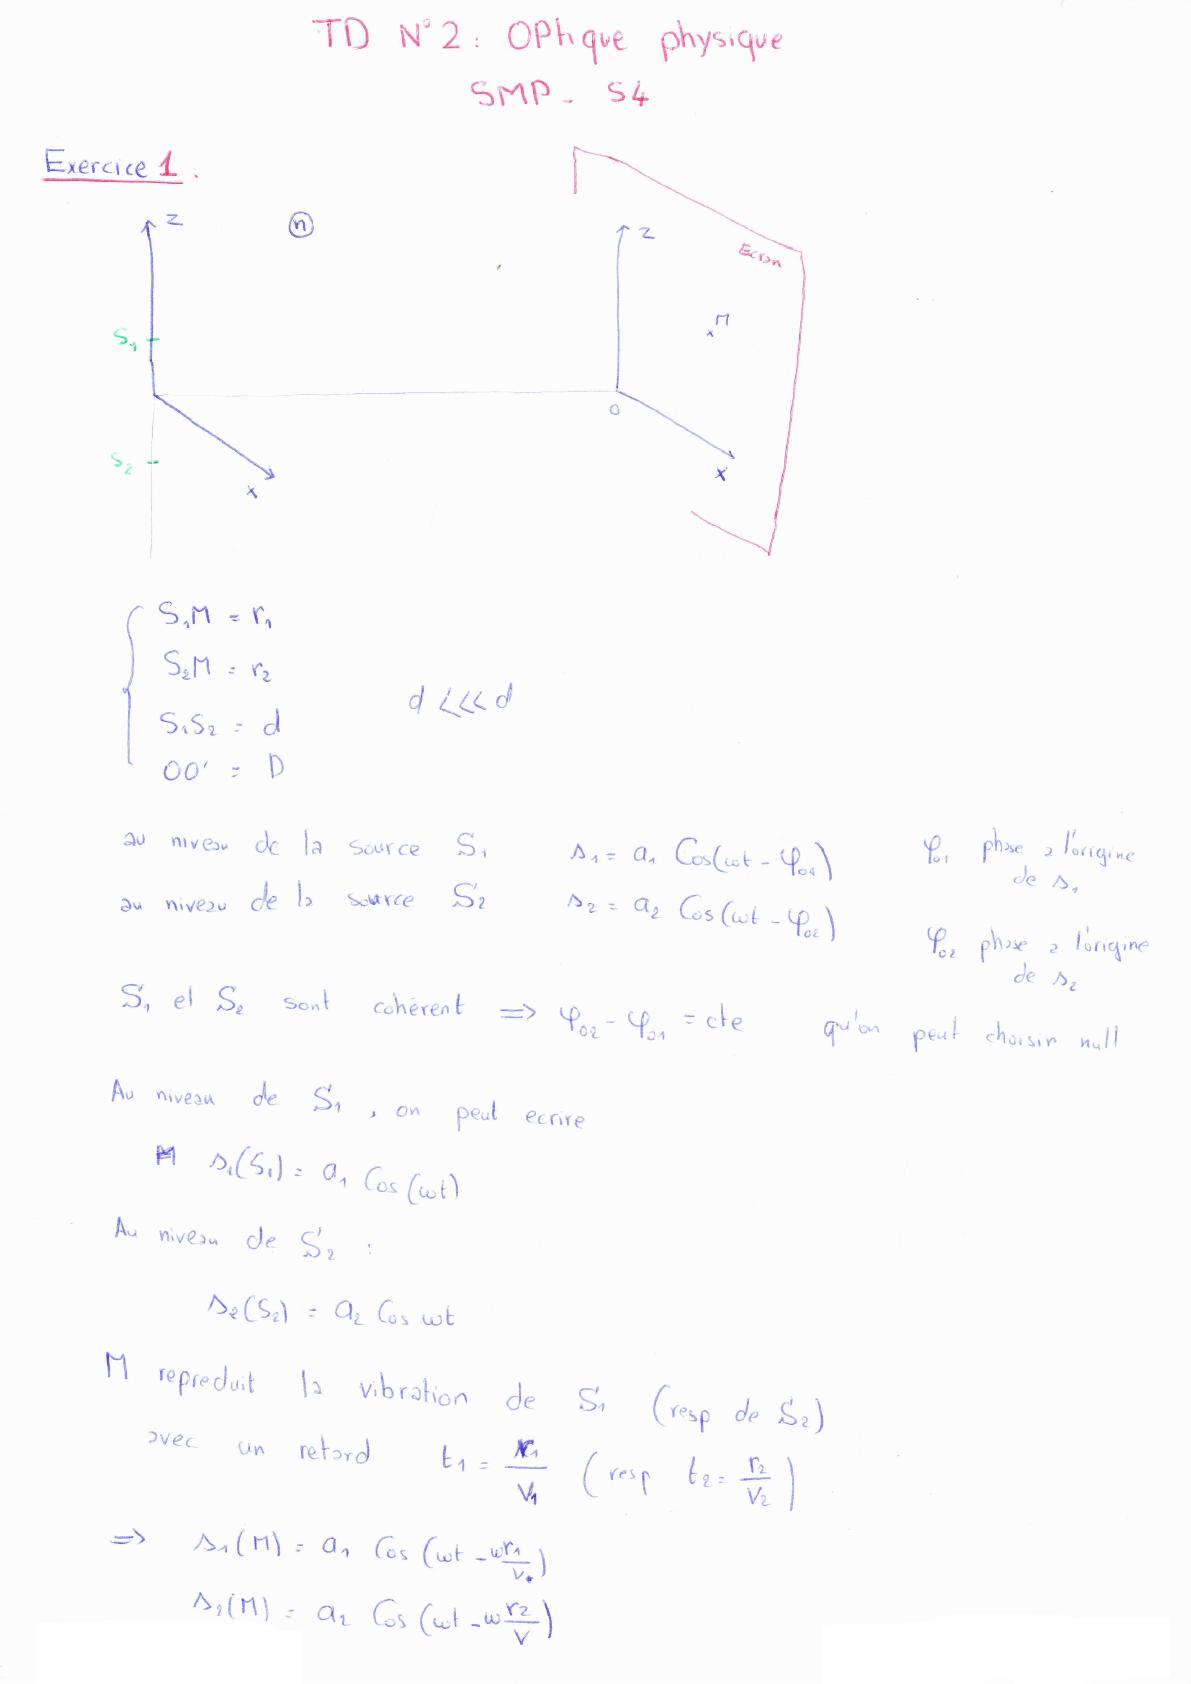 TD N°2 : OPtique physique
SMP - S4
Exercice 1.
z
n
z
Ecran
M
S₁
O
S₂
x
x
S₁M = r₁
S₂M = r₂
d <<< d
S₁S₂ = d
OO' = D
au niveau de la source S₁ s₁ = a₁ Cos(ωt - φ₀₁) φ₀₁ phase a l'origine de s₁
au niveau de la source S₂ s₂ = a₂ Cos(ωt - φ₀₂) φ₀₂ phase a l'origine de s₂
S₁ et S₂ sont cohérent => φ₀₂ - φ₀₁ = cte qu'on peut choisir null
Au niveau de S₁, on peut ecrire
M s₁(S₁) = a₁ Cos(ωt)
Au niveau de S₂ :
s₂(S₂) = a₂ Cos ωt
M repreduit la vibration de S₁ (resp de S₂)
avec un retard t₁ = r₁/V₁ (resp t₂ = r₂/V₂)
=> s₁(M) = a₁ Cos(ωt - ωr₁/v)
s₂(M) = a₂ Cos(ωt - ω r₂/V)